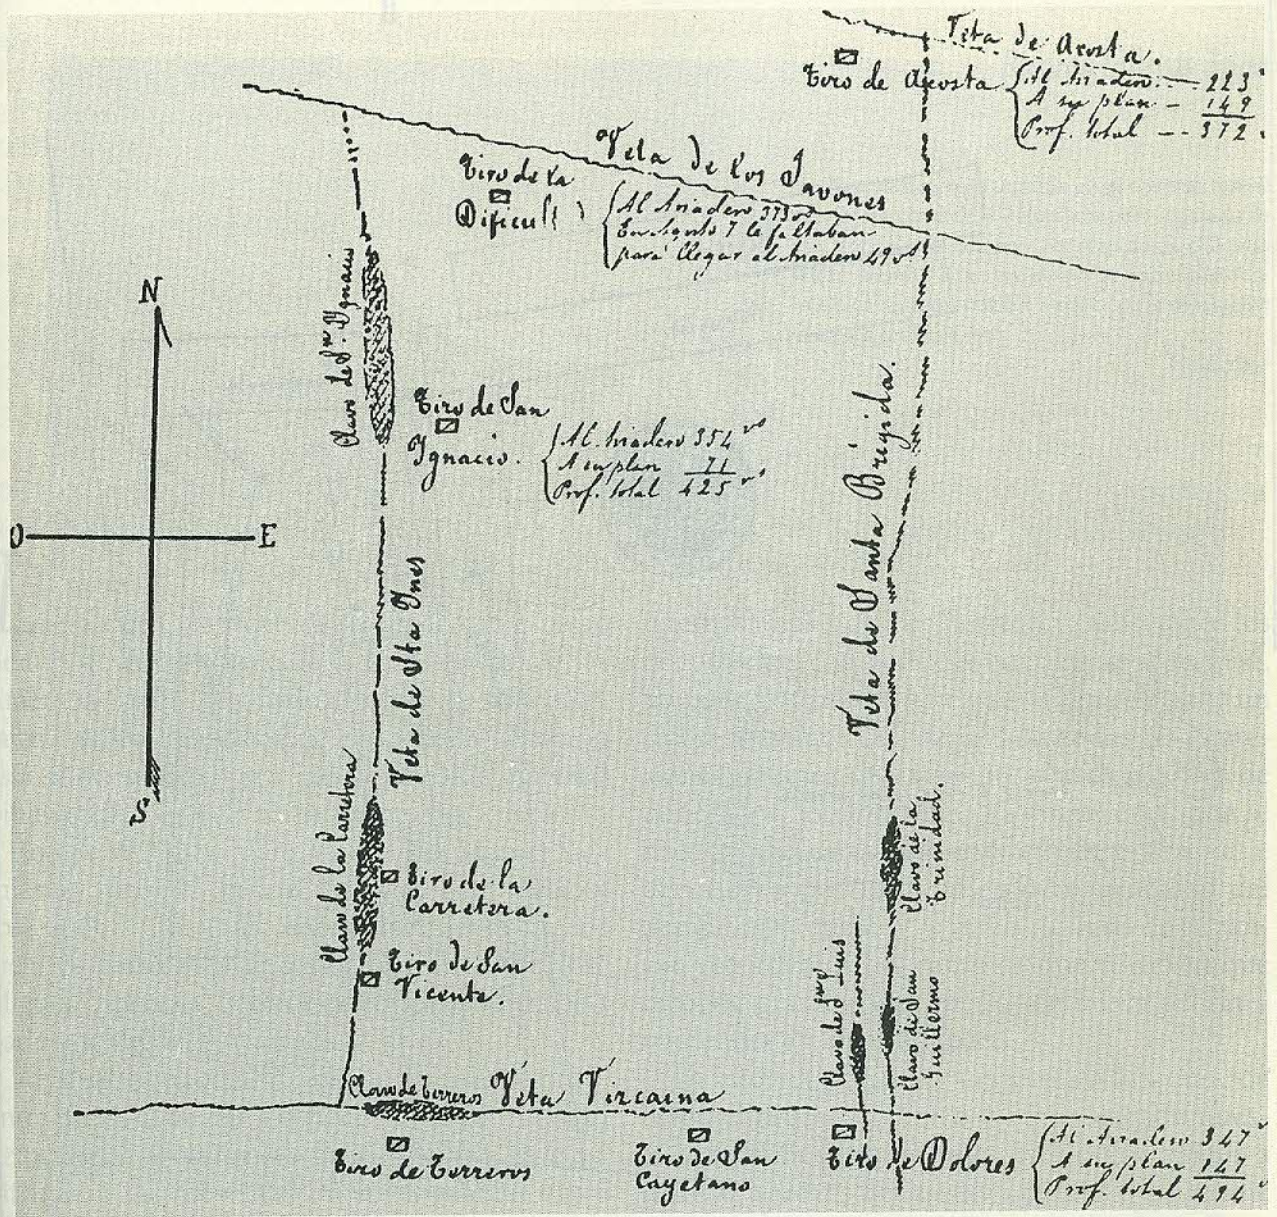 Veta de Acosta.
Tiro de Acosta
Al Aviadero 223
A su plan 149
Prof. total 372
Veta de los Javones
Tiro de la
Dificul
Al Aviadero 373 vs
En Agosto 7 le faltaban
para llegar al Aviadero 49 vs
Clavo de Sn. Ygnacio
N
O
E
S
Tiro de San
Ygnacio.
Al Aviadero 354 vs
A su plan 71
Prof. total 425 vs
Veta de Santa Brígida.
Veta de Sta Ynes
Clavo de la Carretera
Tiro de la
Carretera.
Tiro de San
Vicente.
Clavo de la
Trinidad.
Clavo de Sn Luis
Clavo de San
Guillermo
Clavo de Terreros
Veta Vizcaina
Tiro de Terreros
Tiro de San
Cayetano
Tiro de Dolores
Al Aviadero 347
A su plan 147
Prof. total 494